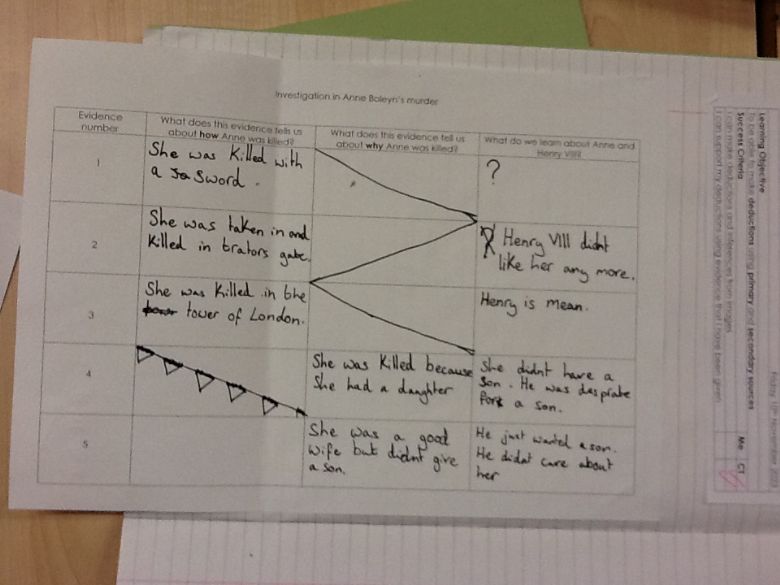 Investigation in Anne Boleyn's murder
Evidence
number
What does this evidence tells us
about how Anne was killed?
What does this evidence tell us
about why Anne was killed?
What do we learn about Anne and
Henry VIII?
1
She was killed with
a sword.
?
2
She was taken in and
killed in trators gate.
Henry VIII didnt
like her any more.
3
She was killed in the
tower of London.
Henry is mean.
4
She was killed because
she had a daughter
She didnt have a
son. He was desprate
for a son.
5
She was a good
wife but didnt give
a son.
He just wanted a son.
He didnt care about
her
Learning Objective
To be able to make deductions using primary and secondary sources
Success Criteria
Me CT
I can make deductions and inferences from images
I can support my deductions using evidence that I have been given
Friday November